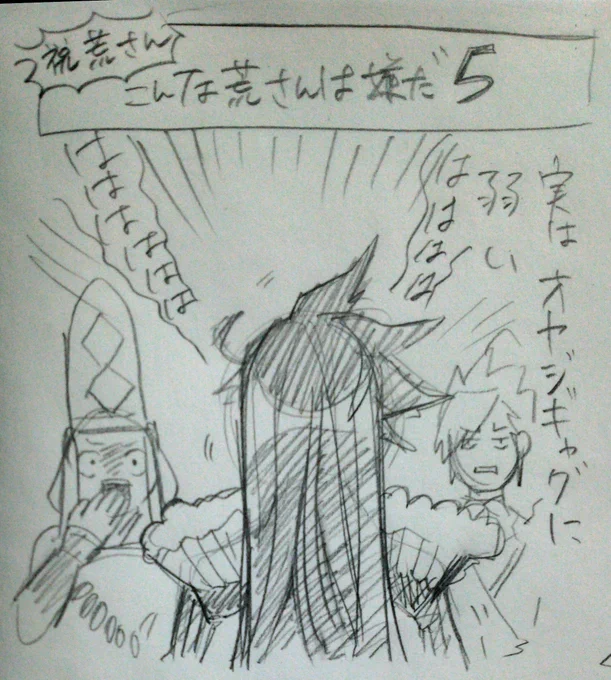 祝荒さん
こんな荒さんは嫌だ5
実はオヤジギャグに
弱い
はははは
ははははははは